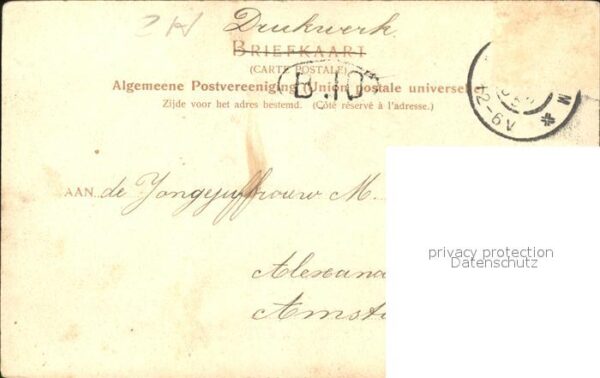 Drukwerk.
BRIEFKAART
(CARTE POSTALE)
B.10
Algemeene Postvereeniging (Union postale universel
Zijde voor het adres bestemd. (Côté réservé à l'adresse.)
12-9V
M
AAN de Jongejuffrouw M.
privacy protection
Datenschutz
Alexand
Amst